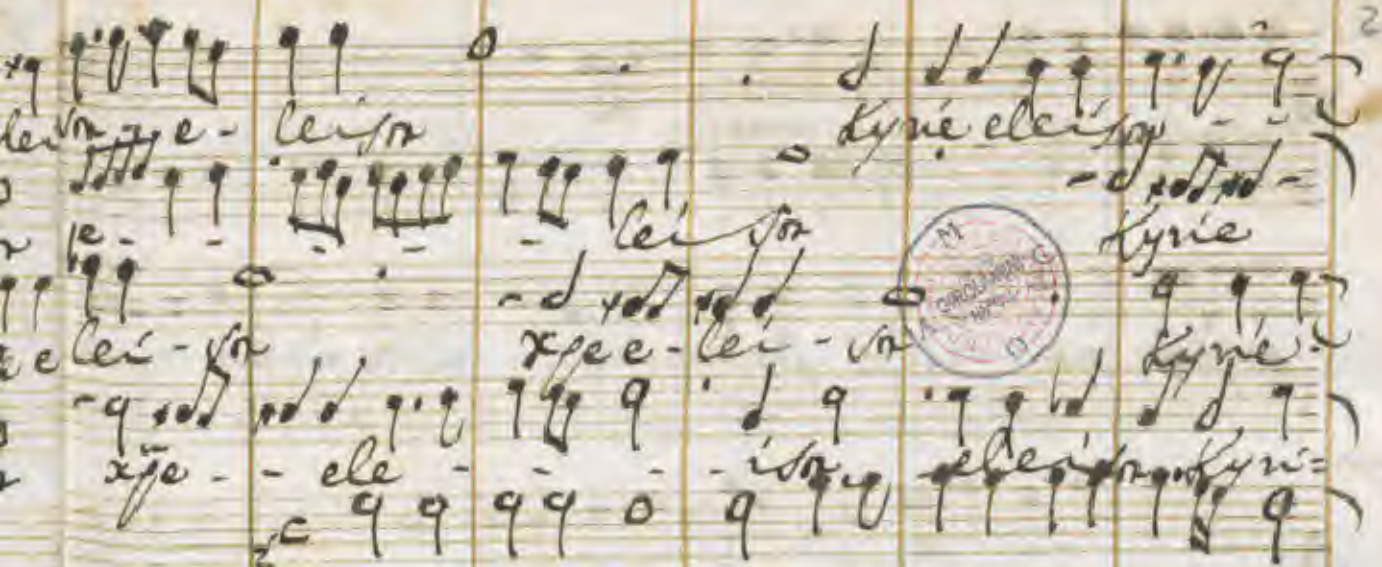 2
leison xp̄e e - leison Kyrie eleison - -
e - - - - - leison Kyrie
e lei - son xp̄e e - lei - son Kyrie -
xp̄e - - ele - - - - ison eleison Kyri=